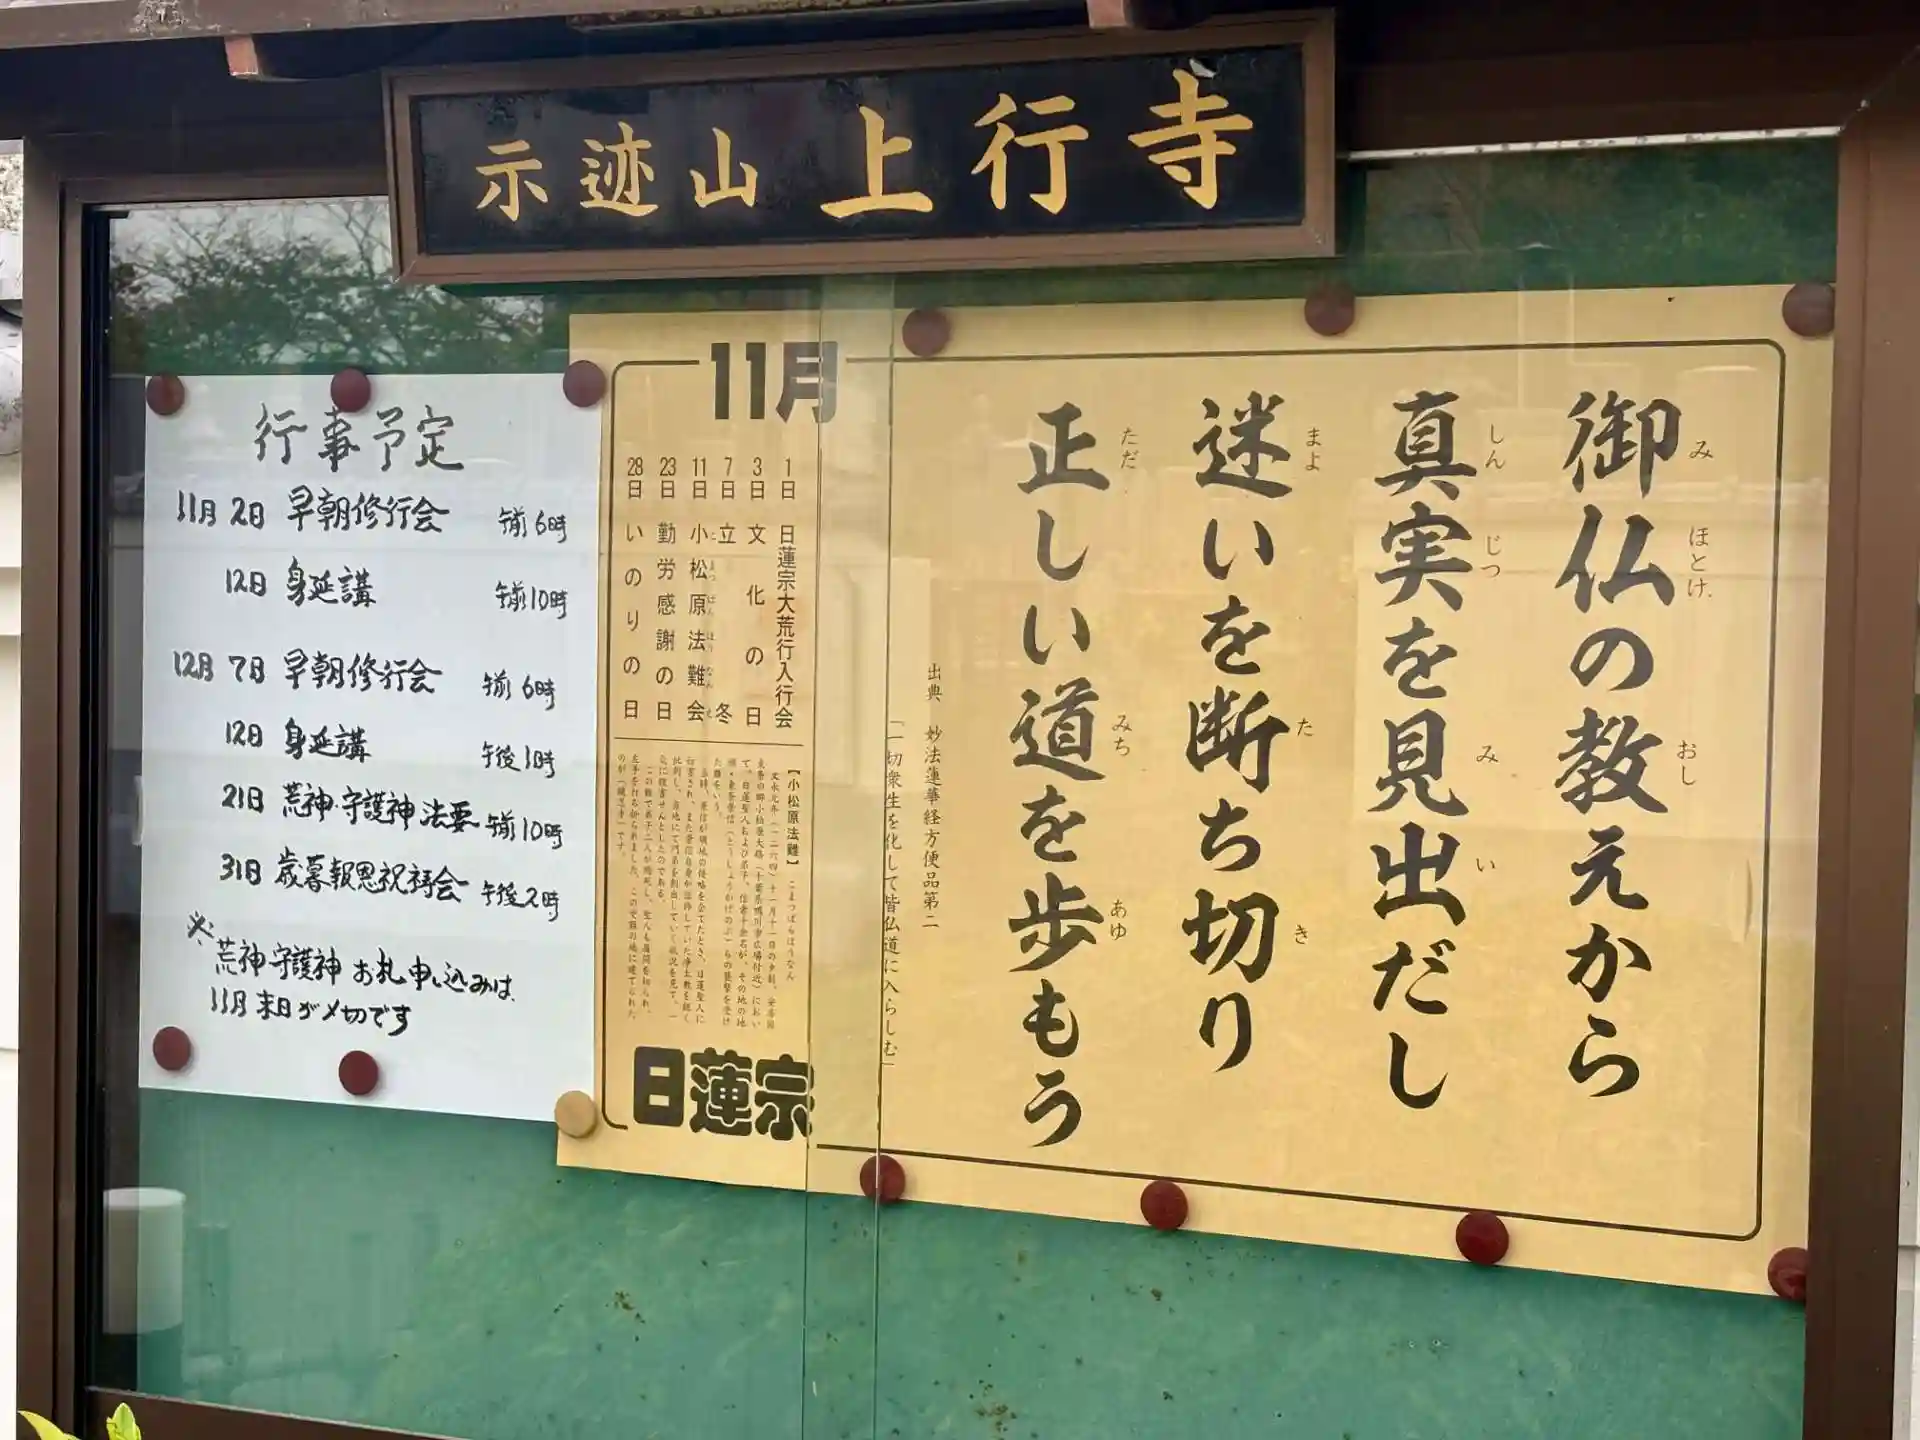 示迹山 上行寺
行事予定
11月 2日 早朝修行会 午前6時
12日 身延講 午前10時
12月 7日 早朝修行会 午前6時
12日 身延講 午後1時
21日 荒神・守護神法要 午前10時
31日 歳暮報恩祝祷会 午後2時
※荒神・守護神お札申し込みは、
11月末日が〆切です
御仏の教えから
み ほとけ おし
真実を見出だし
しん じつ み い
迷いを断ち切り
まよ た き
正しい道を歩もう
ただ みち あゆ
出典 妙法蓮華経方便品第二
「一切衆生を化して皆仏道に入らしむ」
11月
1日 日蓮宗大荒行入行会
3日 文化の日
7日 立冬
11日 小松原法難会
こまつばらほうなんえ
23日 勤労感謝の日
28日 いのりの日
【小松原法難】 こまつばらほうなん
日蓮宗